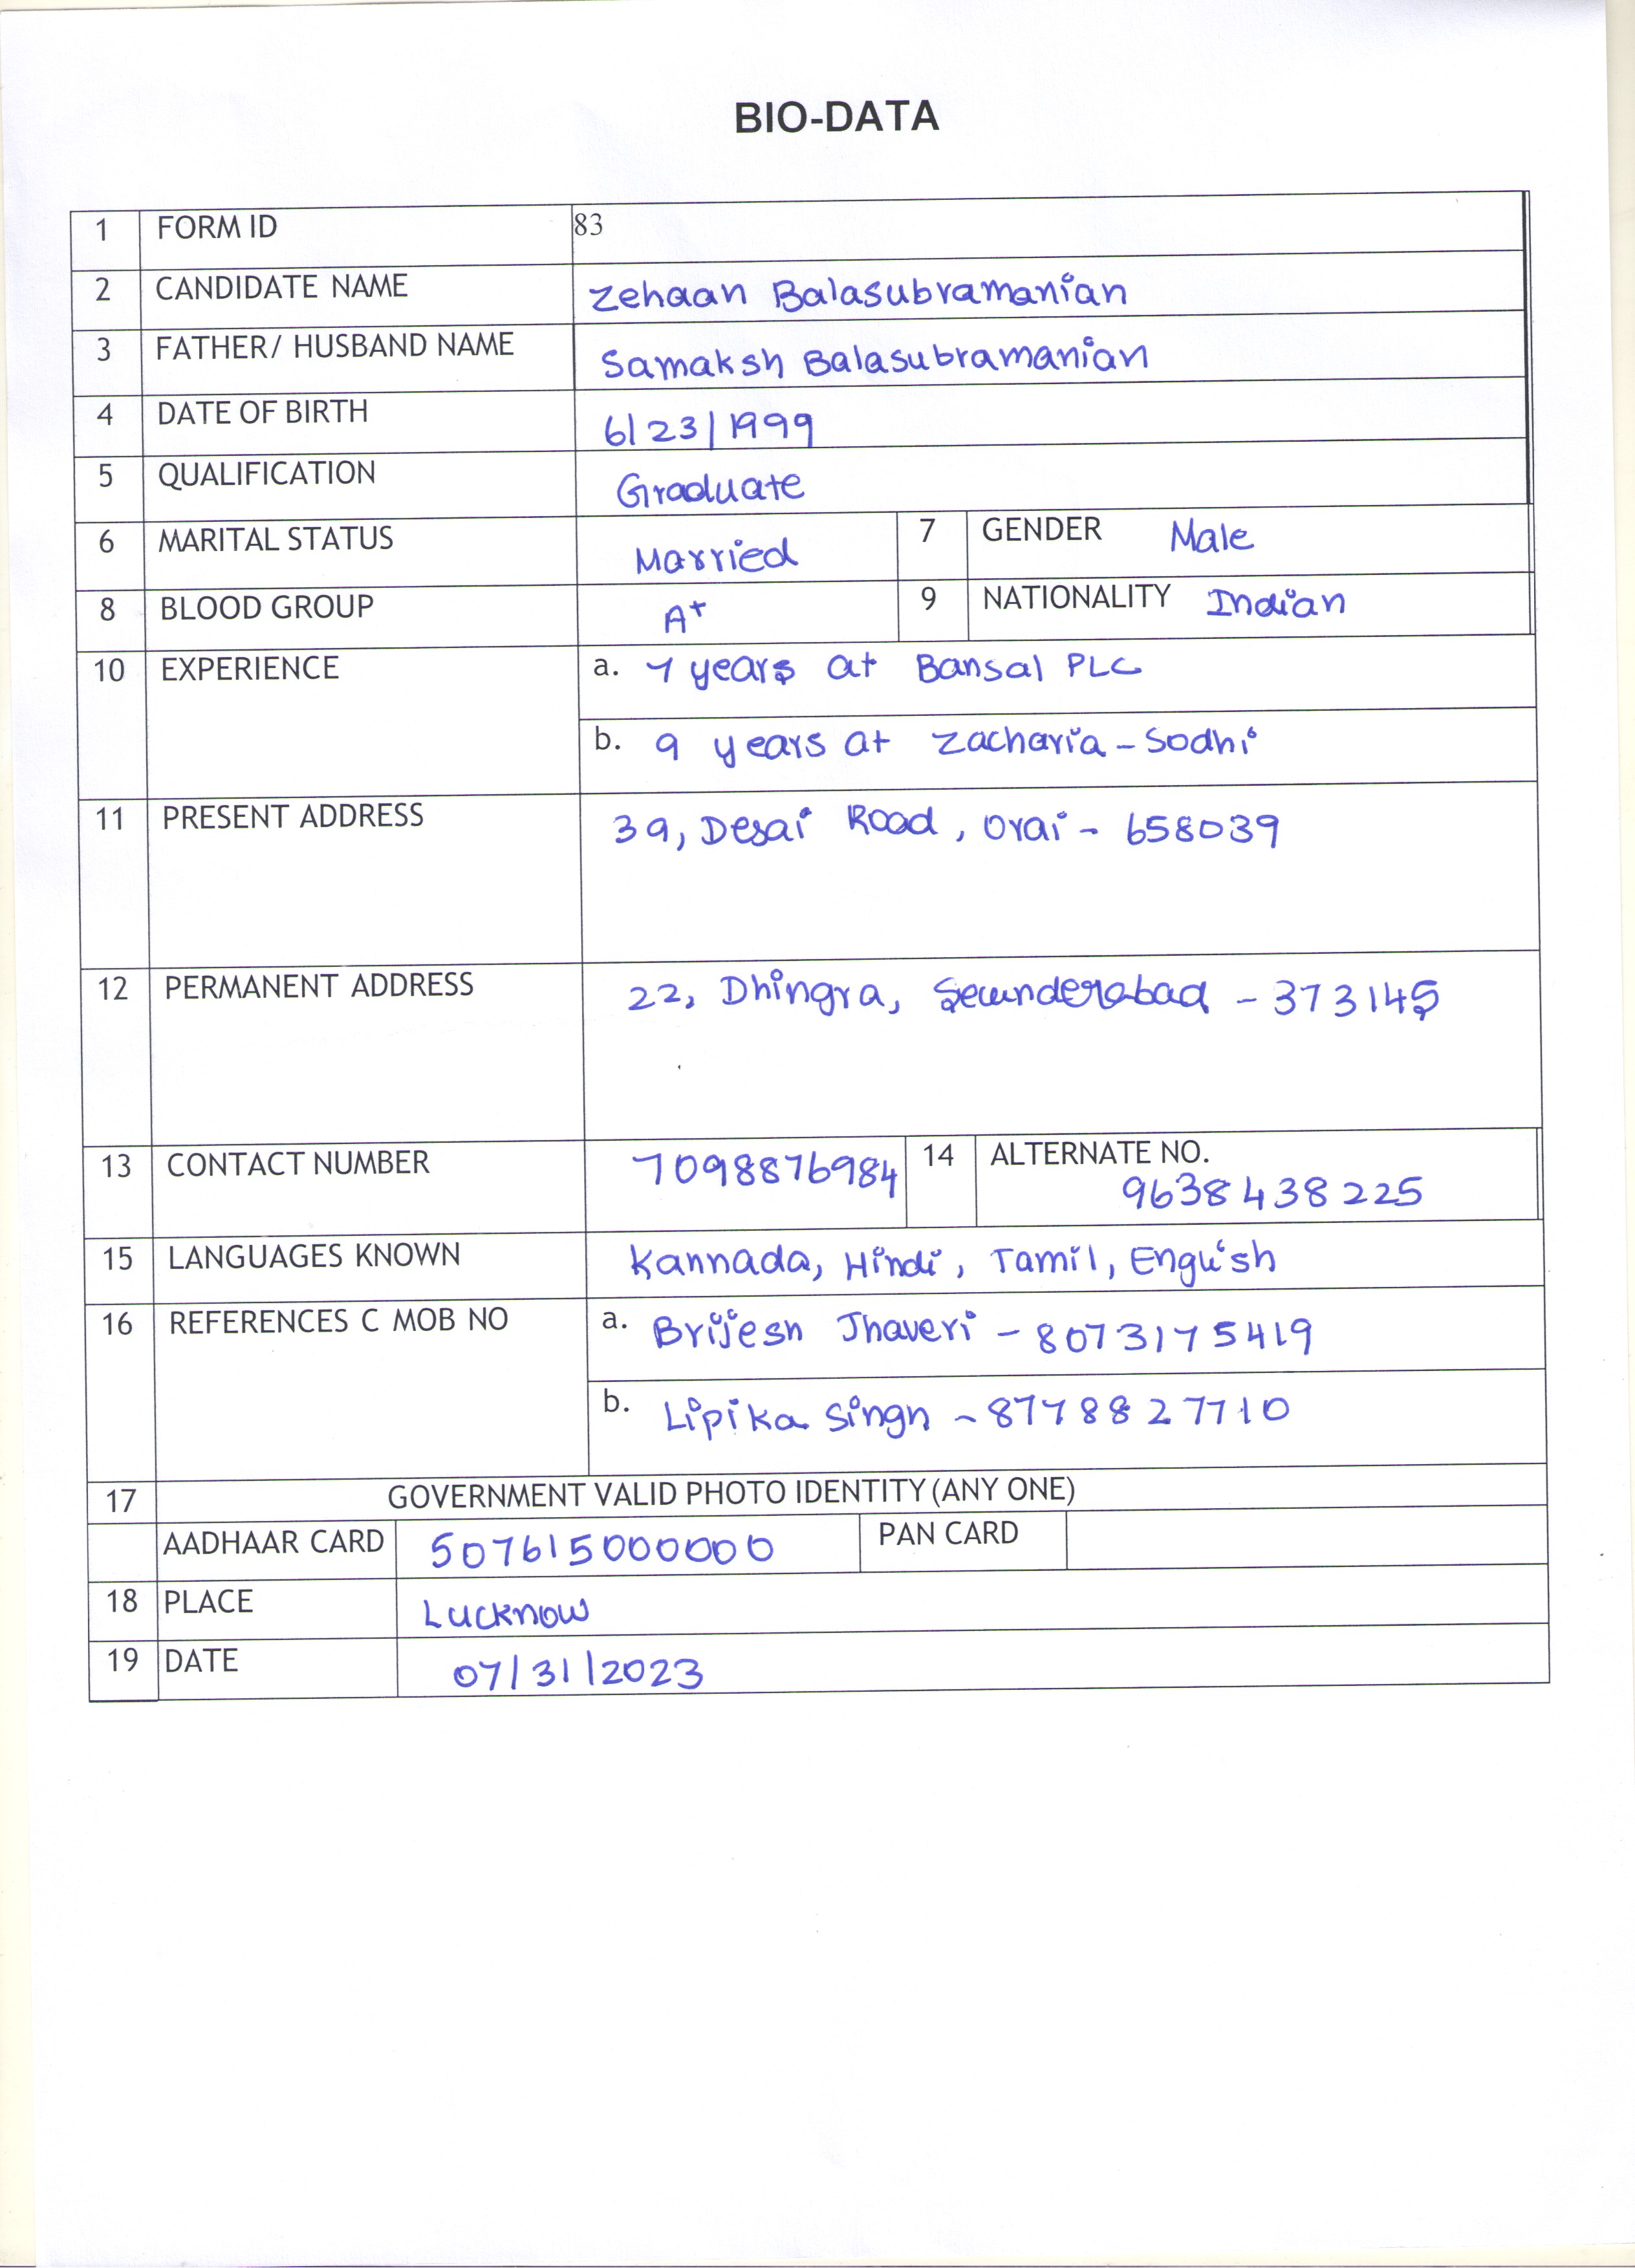 BIO-DATA
1 FORM ID 83
2 CANDIDATE NAME Zehaan Balasubramanian
3 FATHER/ HUSBAND NAME Samaksh Balasubramanian
4 DATE OF BIRTH 6/23/1999
5 QUALIFICATION Graduate
6 MARITAL STATUS Married 7 GENDER Male
8 BLOOD GROUP A+ 9 NATIONALITY Indian
10 EXPERIENCE a. 7 years at Bansal PLC
b. 9 years at Zacharia-Sodhi
11 PRESENT ADDRESS 39, Desai Road, Orai - 658039
12 PERMANENT ADDRESS 22, Dhingra, Secunderabad - 373145
13 CONTACT NUMBER 7098876984 14 ALTERNATE NO.
9638438225
15 LANGUAGES KNOWN Kannada, Hindi, Tamil, English
16 REFERENCES C MOB NO a. Brijesh Jhaveri - 8073175419
b. Lipika Singh - 8778827710
17 GOVERNMENT VALID PHOTO IDENTITY (ANY ONE)
AADHAAR CARD 507615000000 PAN CARD
18 PLACE Lucknow
19 DATE 07/31/2023